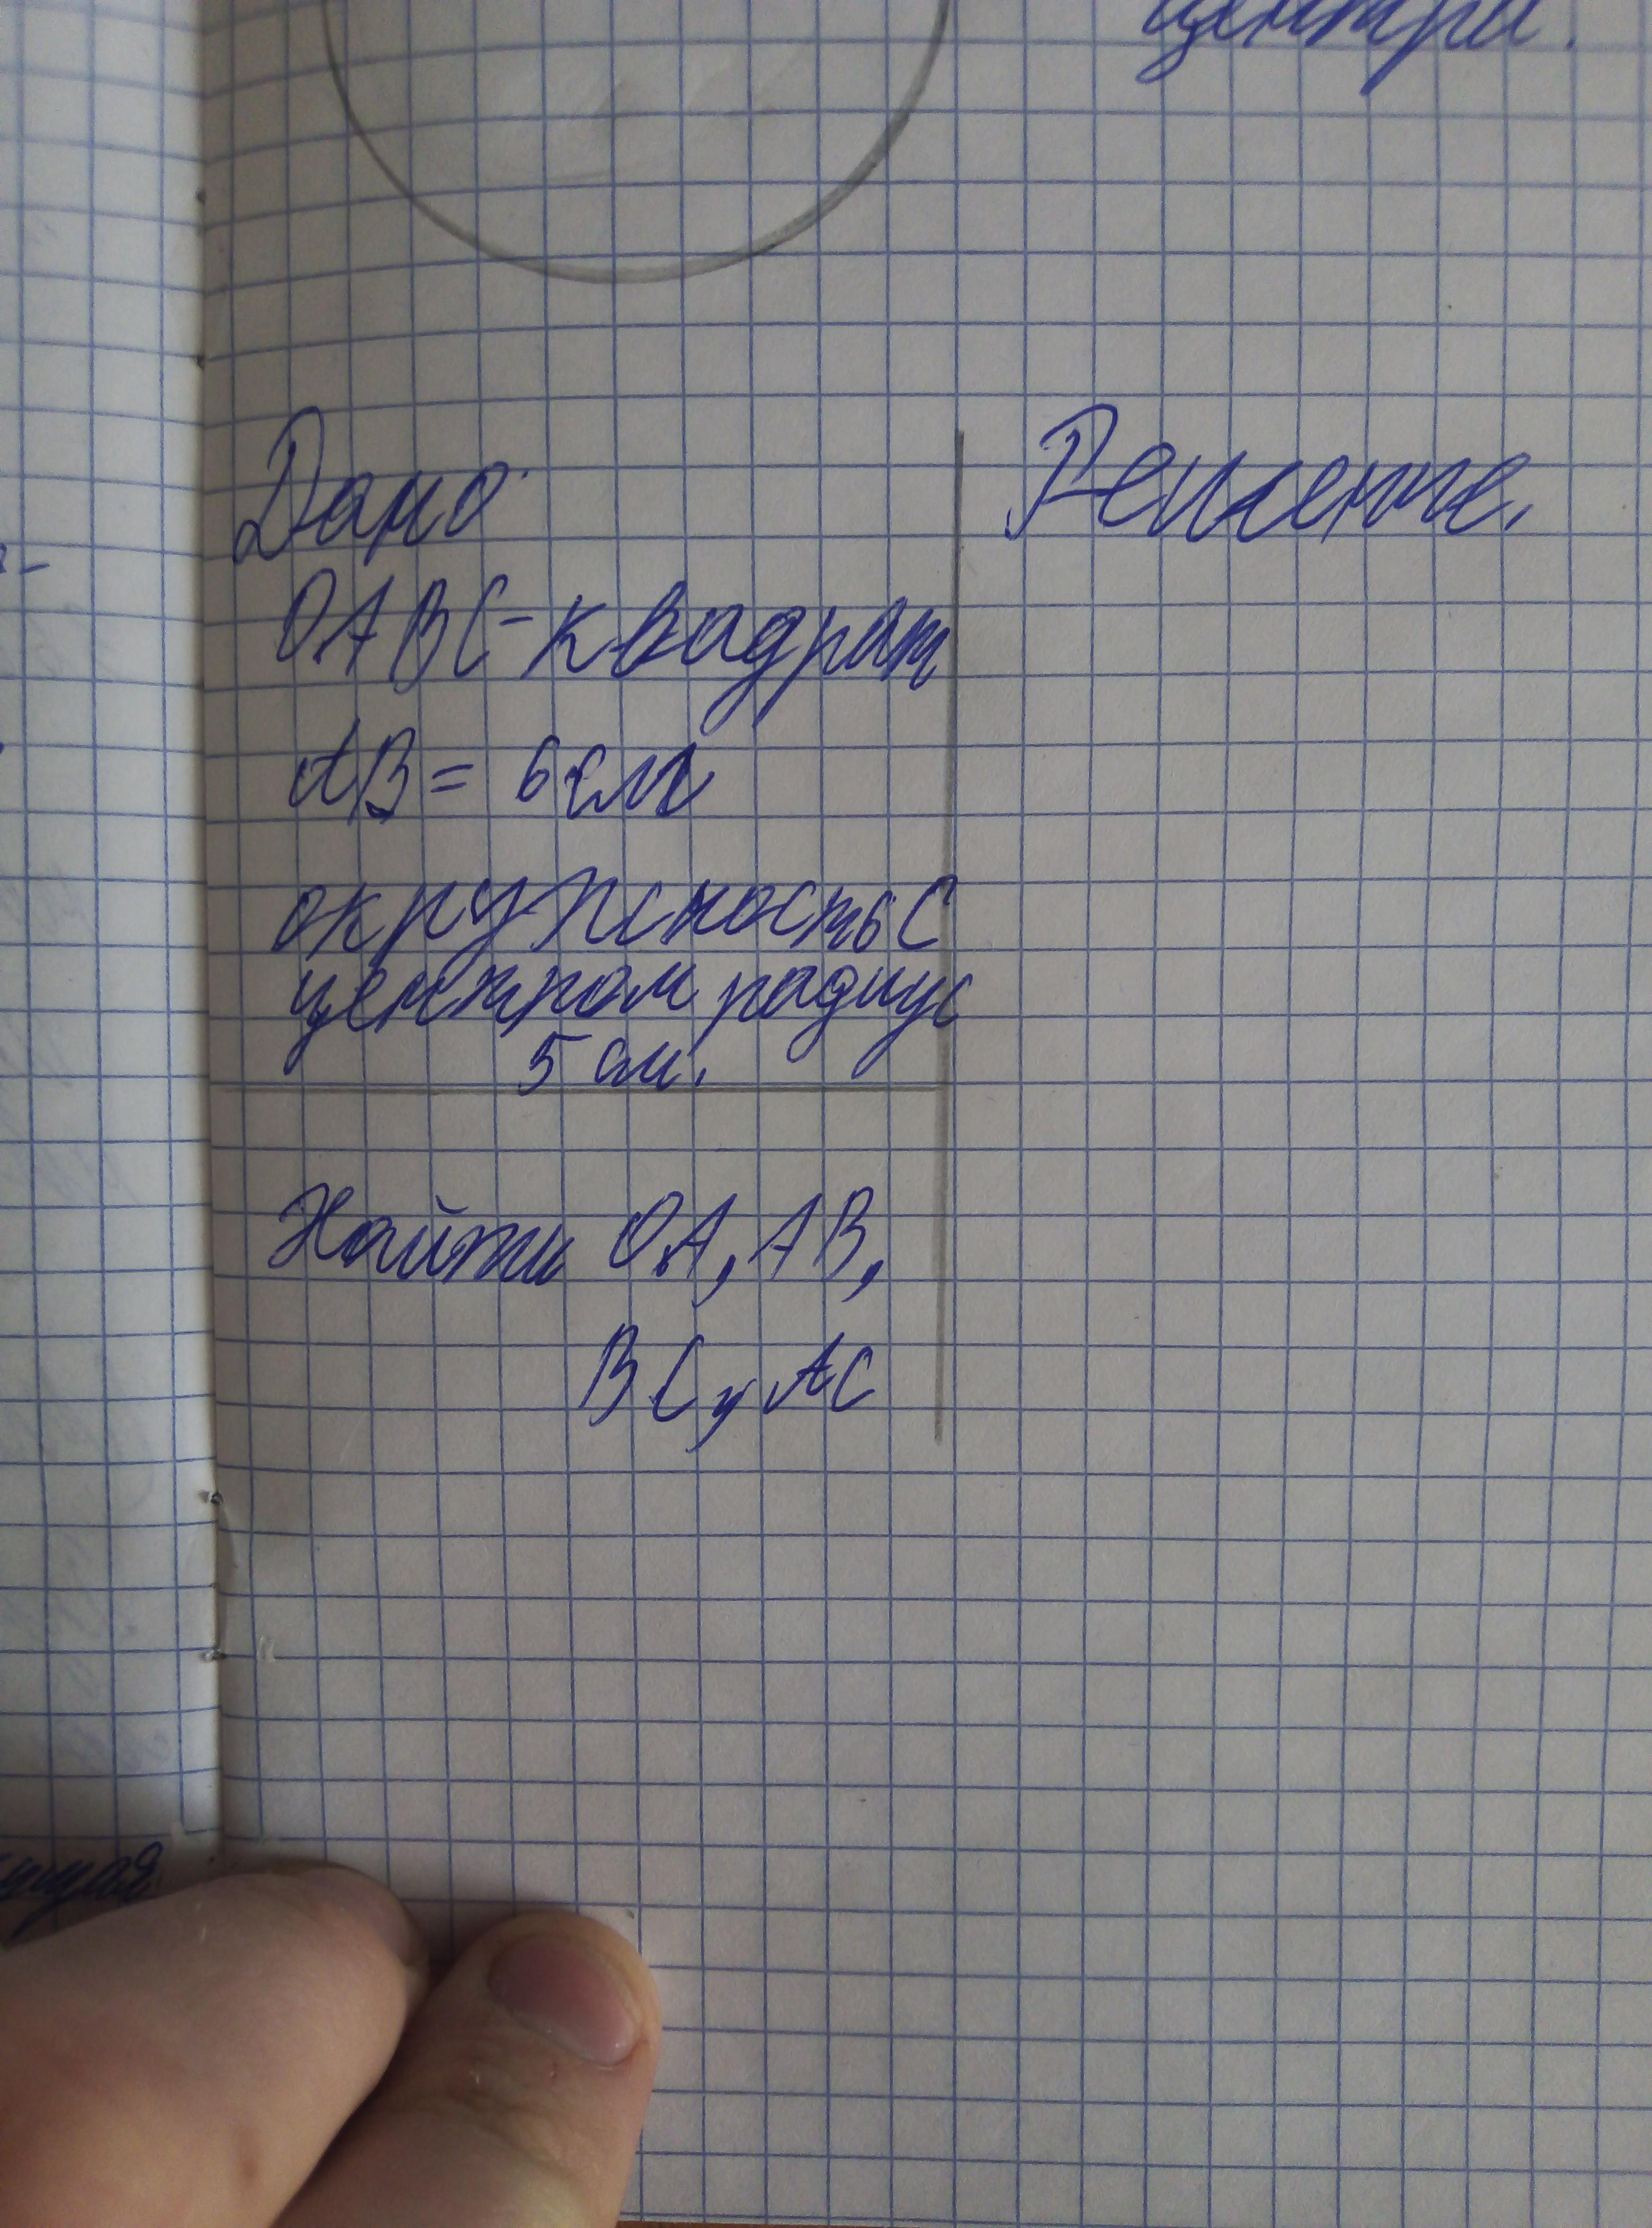 центра.
Дано
Решение.
OABC-квадрат
AB = 6 см
окружность C
центром радиус
5 см.
Найти OA, AB,
BC и AC
ущая